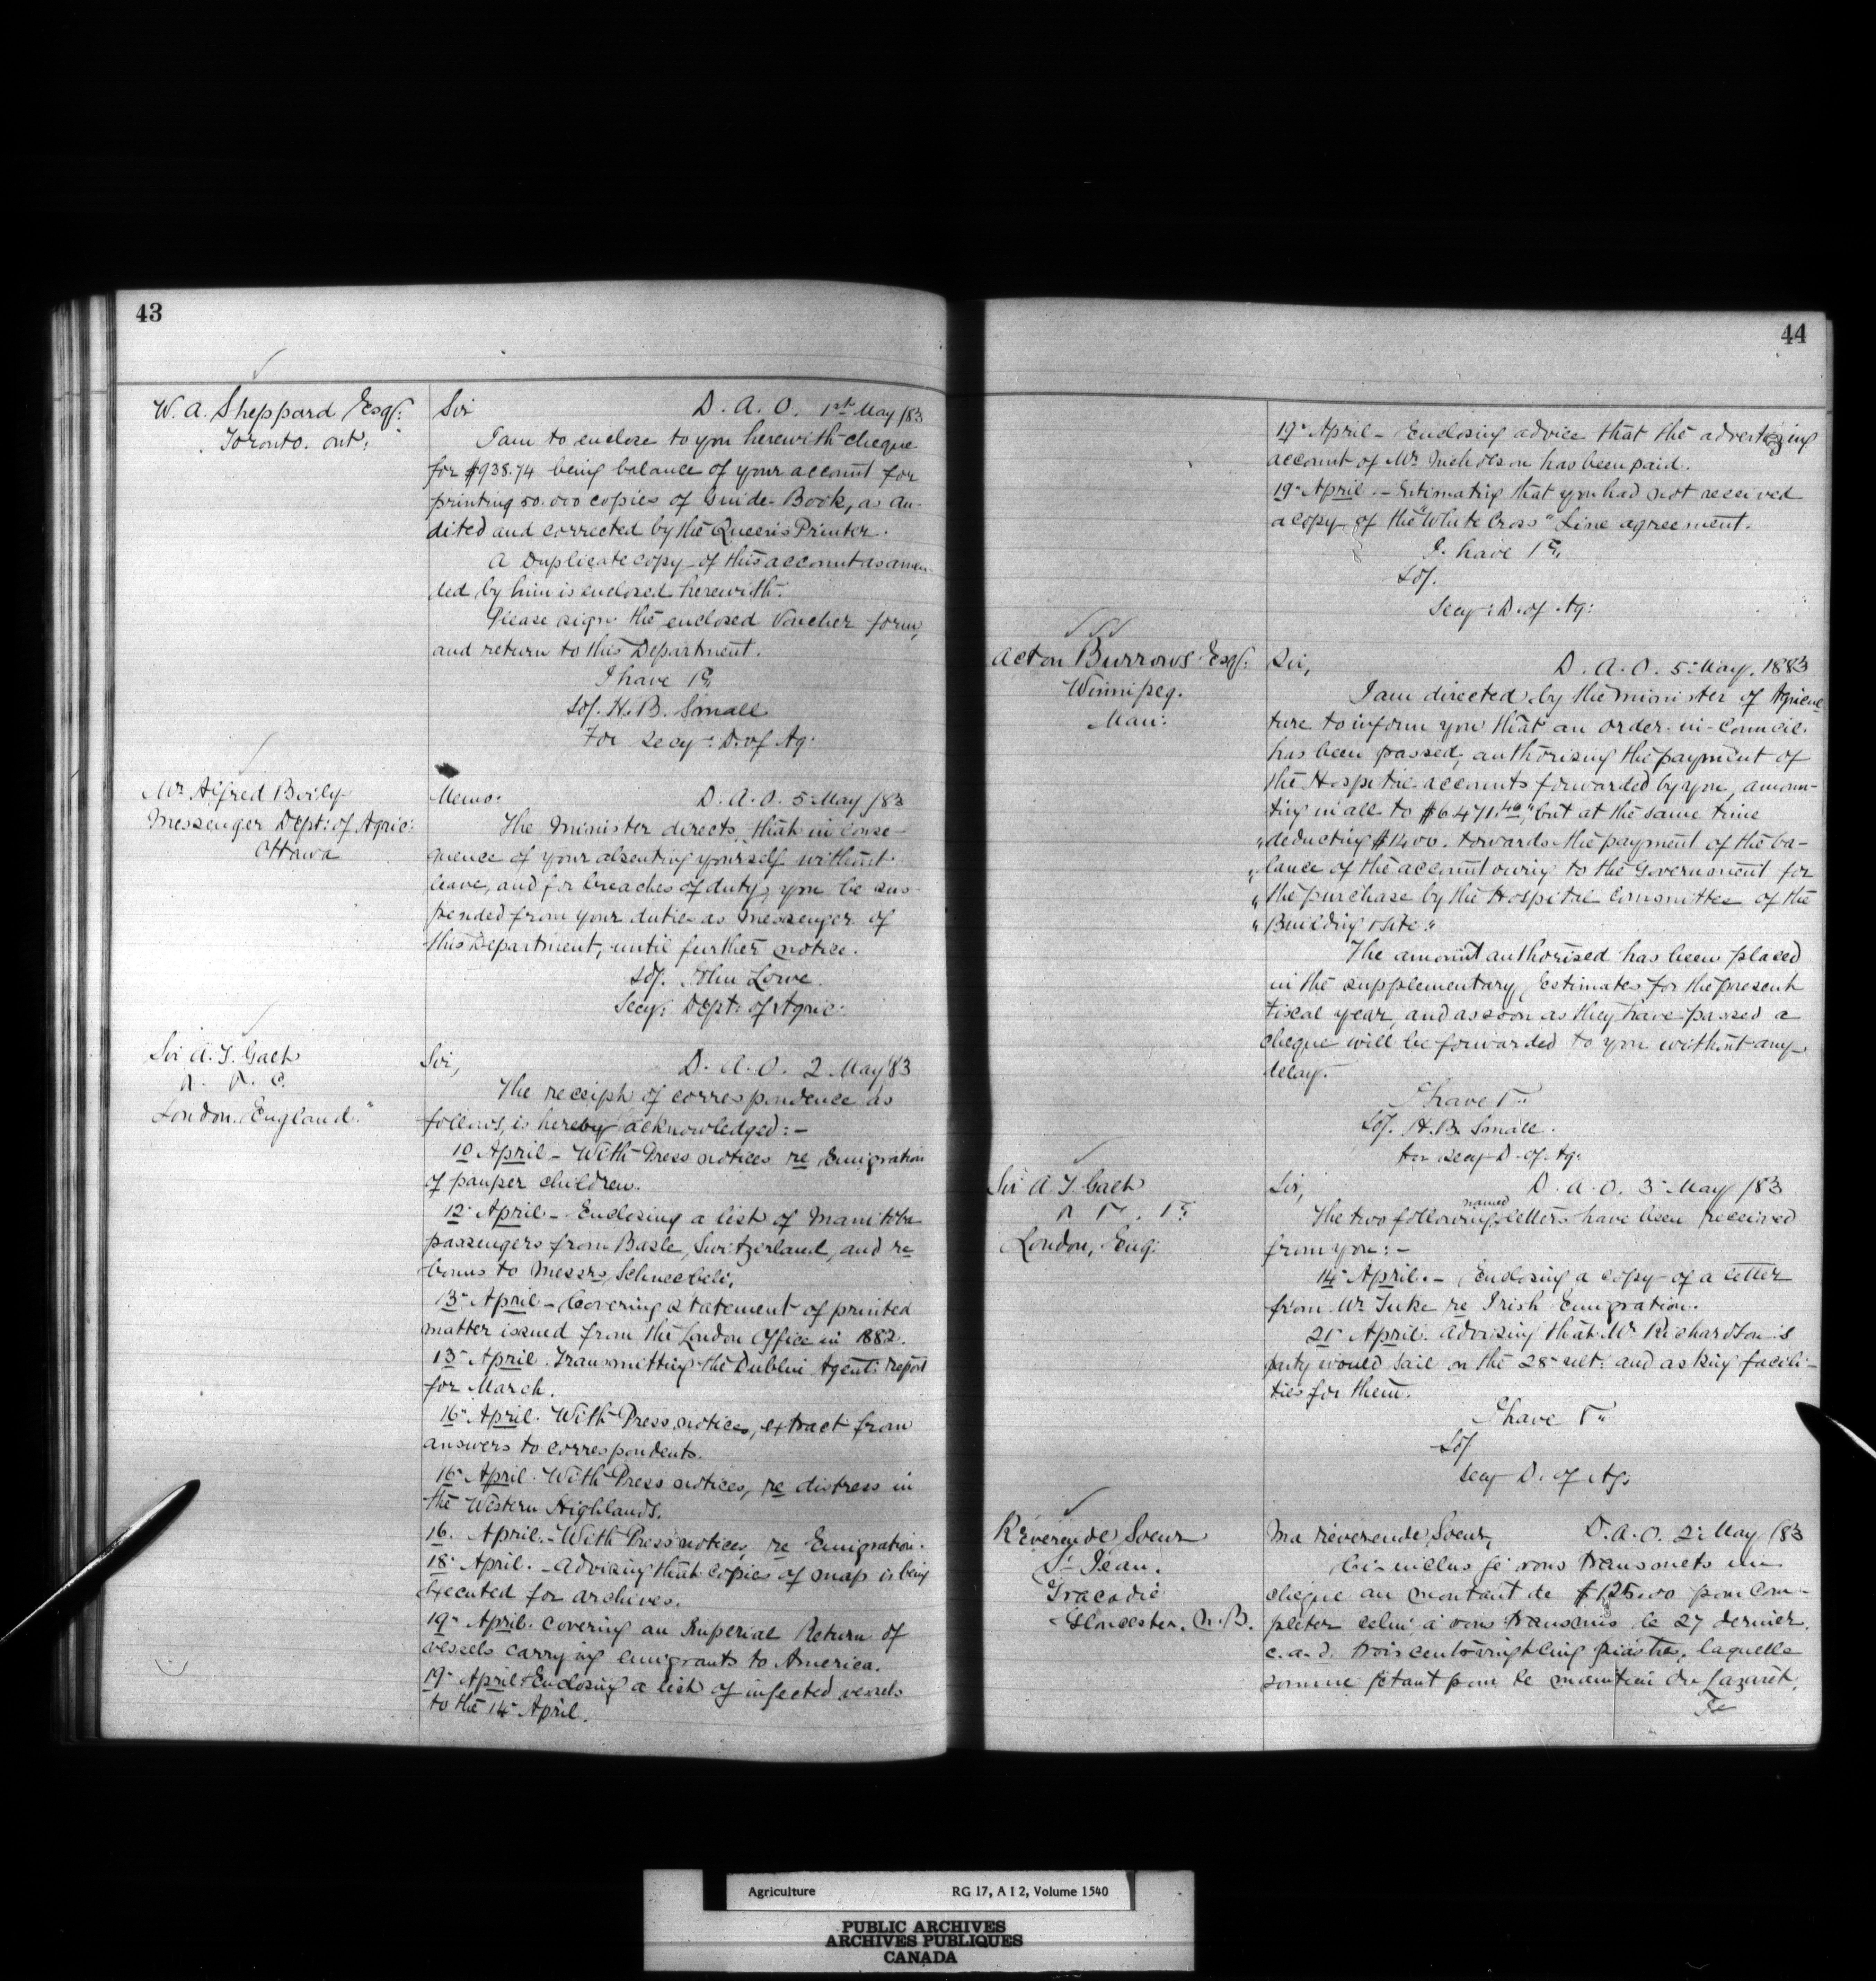 43
W. A. Sheppard Esqr:
Toronto. Ont:
Sir D. A. O. 1st May /83
I am to enclose to you herewith cheque
for $938.74 being balance of your account for
printing 50.000 copies of Guide-Book, as au-
dited and corrected by the Queen's Printer.
A Duplicate copy of this account as amen
ded by him is enclosed herewith.
Please sign the enclosed Voucher form,
and return to this Department.
I have &c
Sd/. H. B. Small
For Secy: D. of Ag:
Mr Alfred Boily
Messenger Dept: of Agric:
Ottawa
Memo: D. A. O. 5 May /83
The Minister directs, that in conse-
quence of your absenting yourself without
leave, and for breaches of duty, you be sus-
pended from your duties as Messenger of
this Department, until further notice.
Sd/. John Lowe
Secy: Dept: of Agric:
Sir A. T. Galt
London, England.
Sir, D. A. O. 2 May 83
The receipt of correspondence as
follows, is hereby acknowledged:-
10 April - With Press notices re Emigration
of pauper children.
12 April - Enclosing a list of Manitoba
passengers from Basle, Switzerland, and re
bonus to Messrs Schneebeli.
13 April - Covering statement of printed
matter issued from the London Office in 1882.
13 April. Transmitting the Dublin Agent's report
for March.
16 April. With Press notices, extract from
answers to correspondents.
16 April. With Press notices, re distress in
the Western Highlands.
16. April. - With Press notices re Emigration.
18 April. - Advising that copies of map is being
executed for archives.
19 April. Covering an Imperial Return of
vessels carrying emigrants to America.
19 April Enclosing a list of infected vessels
to the 14 April.
44
19 April - Enclosing advice that the advertizing
account of Mr Nicholson has been paid.
19 April. - Intimating that you had not received
a copy of the "White Cross" Line agreement.
I have &c
Sd/.
Secy: D. of Ag:
Acton Burrows Esqr:
Winnipeg.
Man:
Sir, D. A. O. 5 May, 1883
I am directed by the Minister of Agricul
ture to inform you that an Order-in-Council
has been passed, authorising the payment of
the Hospital accounts forwarded by you, amoun-
ting in all to $6471.40, "but at the same time
"deducting $1400. towards the payment of the ba-
"lance of the account owing to the Government for
"the purchase by the Hospital Committee of the
"Building & site."
The amount authorised has been placed
in the supplementary Estimates for the present
Fiscal year, and as soon as they have passed a
cheque will be forwarded to you without any
delay.
I have &c
Sd/. H. B. Small.
for Secy D. of Ag:
Sir A. T. Galt
London, Eng:
Sir, D. A. O. 3 May /83
The two following named letters have been received
from you:-
14 April. - Enclosing a copy of a letter
from Mr Tuke re Irish Emigration.
21 April. Advising that Mr Richardson's
party would sail on the 28 ult: and asking facili-
ties for them.
I have &c
Sd/
Secy D. of Ag:
Révérende Soeur
St Jean.
Tracadie
Gloucester, N.B.
Ma révérende Soeur, D. A. O. 2 May /83
Ci-inclus je vous transmets un
cheque au montant de $125.00 pour com-
pléter celui à vous transmis le 27 dernier,
c.a.d. trois cent vingt cinq piastres, laquelle
somme étant pour le maintien du Lazaret.
Je
Agriculture RG 17, A I 2, Volume 1540
PUBLIC ARCHIVES
ARCHIVES PUBLIQUES
CANADA